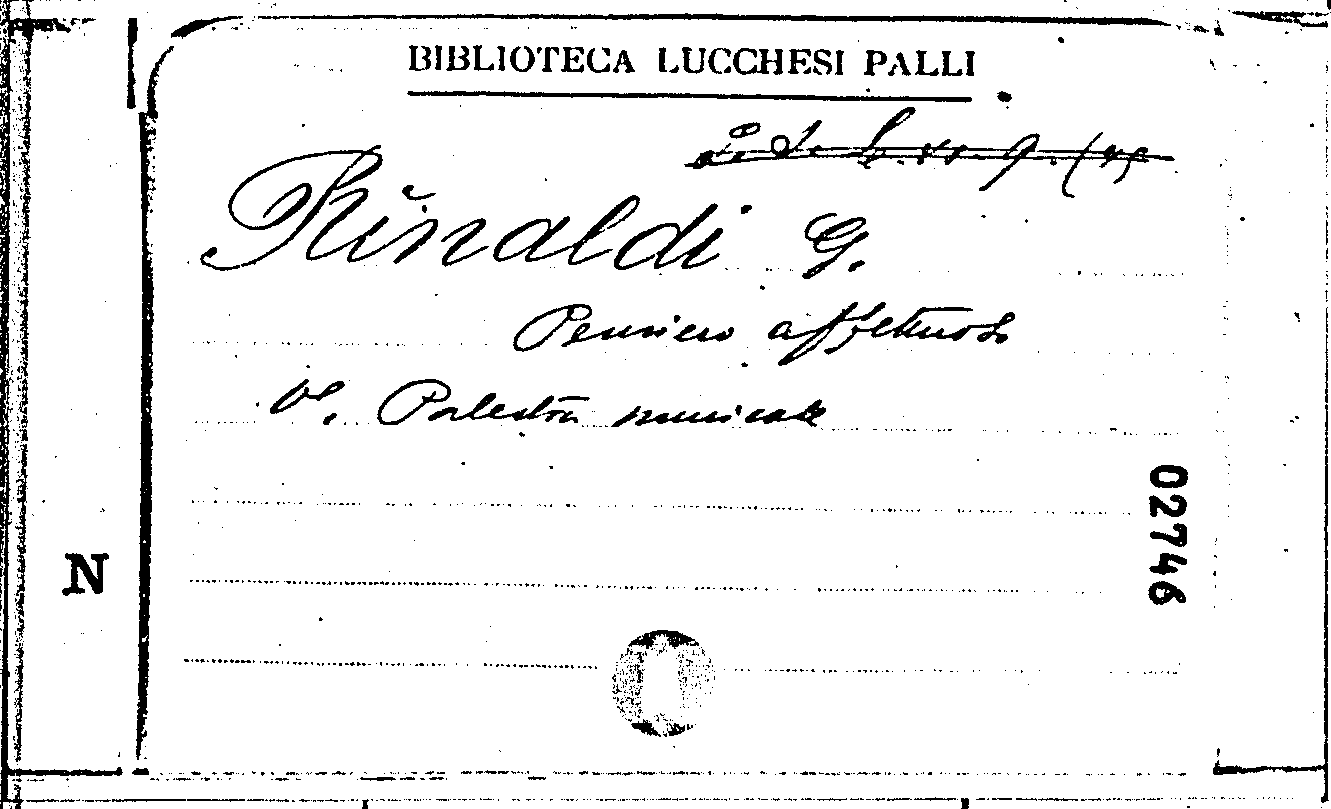 BIBLIOTECA LUCCHESI PALLI
Rinaldi G.
Pensiero affettuoso
Vl. Palestra musicale
02746
N